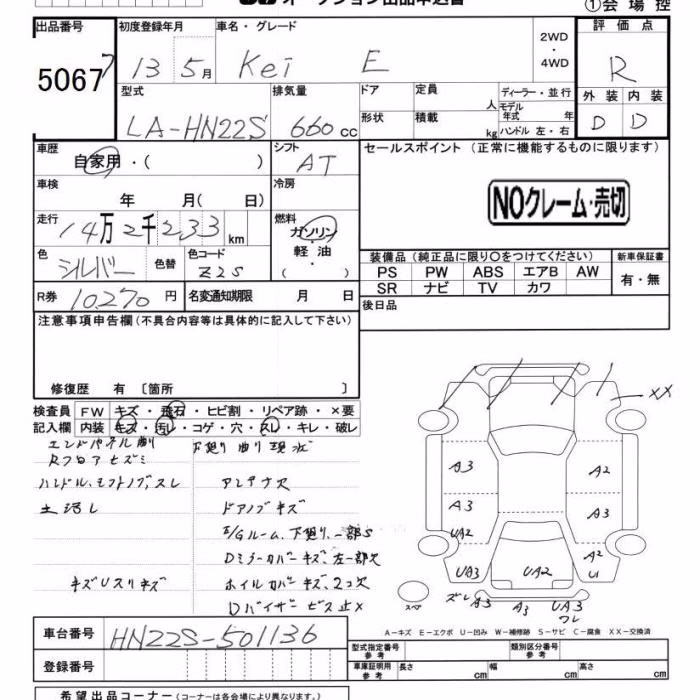 オークション出品申込書 ①会場控
出品番号 初度登録年月 車名・グレード 2WD・4WD 評価点
5067 13 5月 Kei E R
型式 排気量 ドア 定員 人 ディーラー・並行 外装 内装
LA-HN22S 660cc 形状 積載 kg モデル年式 年 ハンドル 左・右 D D
車歴 シフト セールスポイント(正常に機能するものに限ります)
自家用・( ) AT
車検 年 月( 日) 冷房
NOクレーム・売切
走行 14万2千233km 燃料 ガソリン・軽油・( )
色 シルバー 色替 色コード Z2S
装備品(純正品に限り〇をつけてください) 新車保証書
PS PW ABS エアB AW 有・無
SR ナビ TV カワ
R券 10270円 名変通知期限 月 日 後日品
注意事項申告欄(不具合内容等は具体的に記入して下さい)
修復歴 有〔箇所 〕
検査員 FW キズ・飛石・ヒビ割・リペア跡・×要
記入欄 内装 キズ・汚レ・コゲ・穴・スレ・キレ・破レ
エンドパネル 下廻り曲り現状
Rフロアヒズミ
ハンドル、シフトノブスレ アンテナ欠
土汚レ ドアノブキズ
E/Gルーム、下廻り、一部S
Dミラーカバーキズ、左一部欠
キズUスリキズ ホイルカバーキズ、2コ欠
Dバイザービス止×
XX
A3 A2
A3 A3
UA2 A2
UA3 UA2 U1
ズレ A3 A3 UA3
ワレ
A-キズ E-エクボ U-凹み W-補修跡 S-サビ C-腐食 XX-交換済
車台番号 HN22S-501136
型式指定番号 参考 類別区分番号 参考
登録番号 車庫証明用 参考 長さ cm 幅 cm 高さ cm
希望出品コーナー(コーナーは各会場により異なります。)